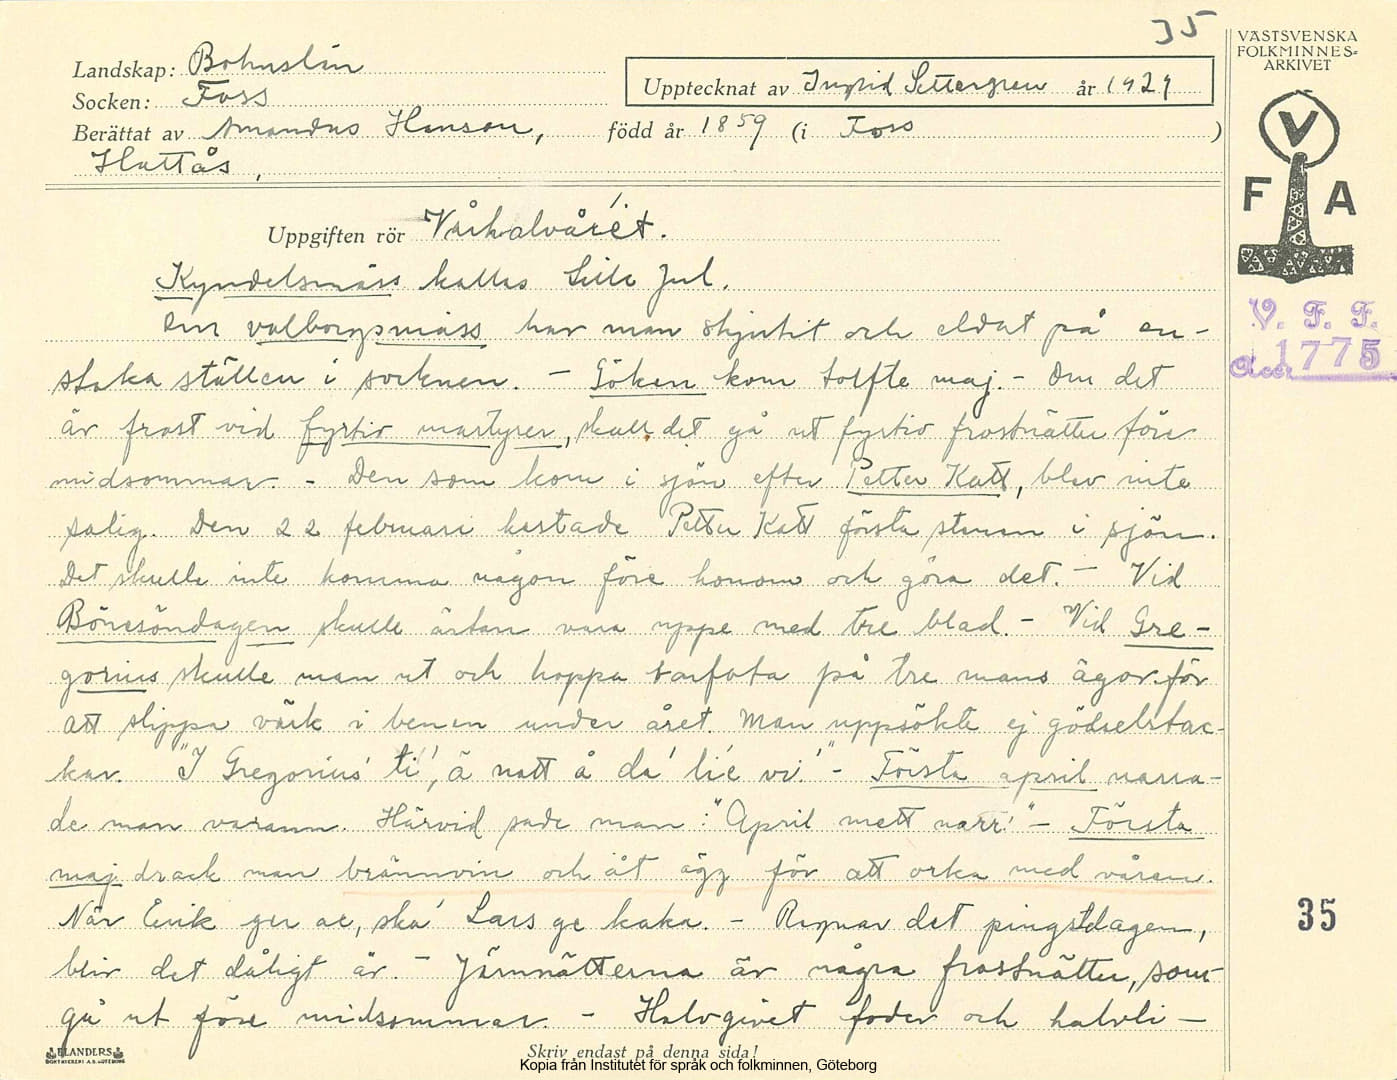 35
VÄSTSVENSKA
FOLKMINNES=
ARKIVET
Landskap: Bohuslän
Upptecknat av Ingrid Settergren år 1929
Socken: Foss
Berättat av Amandus Hanson, född år 1859 (i Foss )
Hattås,
V
F A
Uppgiften rör Vårhalvåret.
Kyndelsmäss kallas Lille Jul.
Om valborgsmäss har man skjutit och eldat på en-
staka ställen i socknen. - Göken kom tolfte maj. - Om det
är frost vid fyrtio martyrer, skall det gå ut fyrtio frostnätter före
midsommar. - Den som kom i sjön efter Petter Katt, blev inte
salig. Den 22 februari kastade Petter Katt första stenen i sjön.
Det skulle inte komma någon före honom och göra det. - Vid
Bönesöndagen skulle ärtan vara uppe med tre blad. - Vid Gre-
gorius skulle man ut och hoppa barfota på tre mans ägor för
att slippa värk i benen under året. Man uppsökte ej gödselstac-
kar. "I Gregorius' ti', ä natt å da' li'e vi'." - Första april narra-
de man varann. Härvid sade man: "April mett narr!" - Första
maj drack man brännvin och åt ägg för att orka med våren.
När Erik ger ax, ska' Lars ge kaka. - Regnar det pingstdagen,
blir det dåligt år. - Järnnätterna är några frostnätter, som
gå ut före midsommar. - Halvgivet foder och halvli-
V. F. F.
Acc. 1775
35
ELANDERS
BOKTRYCKERI A.B. GÖTEBORG
Skriv endast på denna sida!
Kopia från Institutet för språk och folkminnen, Göteborg